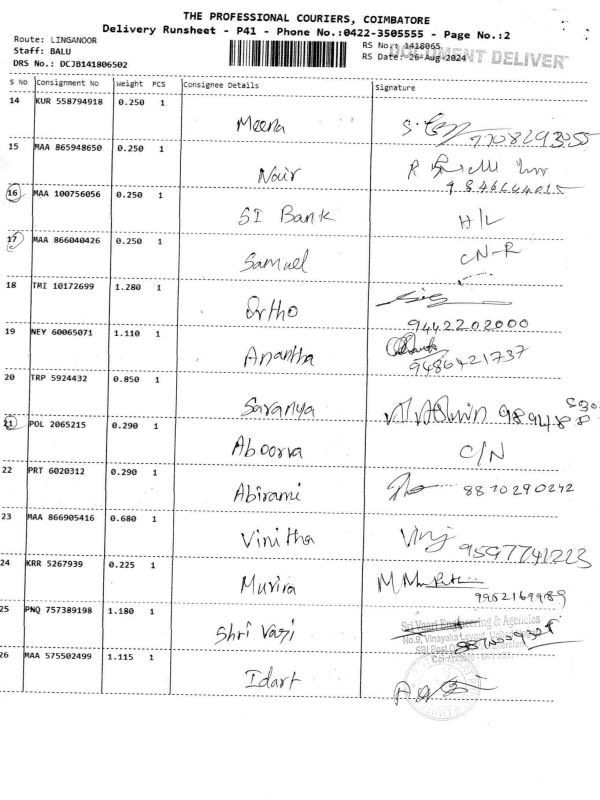 THE PROFESSIONAL COURIERS, COIMBATORE
Delivery Runsheet - P41 - Phone No.:0422-3505555 - Page No.:2
Route: LINGANOOR
Staff: BALU
DRS No.: DCJB141806502
RS No.: 1418065
RS Date: 26-Aug-2024
DOCUMENT DELIVER
S NO Consignment No Weight PCS Consignee Details Signature
14 KUR 558794918 0.250 1 Meena 7708293055
15 MAA 865948650 0.250 1 Nair R
16 MAA 100756056 0.250 1 SI Bank H/L
17 MAA 866040426 0.250 1 Samuel CN-R
18 TMI 10172699 1.280 1 Ortho
9442202000
19 NEY 60065071 1.110 1 Anantha
9486421737
20 TRP 5924432 0.850 1 Saranya
21 POL 2065215 0.290 1 Aboorva C/N
22 PRT 6020312 0.290 1 Abirami 8870290242
23 MAA 866905416 0.680 1 Vinitha 9597741223
24 KRR 5267939 0.225 1 Muvira M
9952169989
25 PNQ 757389198 1.180 1 Shri Vari
Engineering & Agencies
No.9, Vinayaka
26 MAA 575502499 1.115 1 Idart